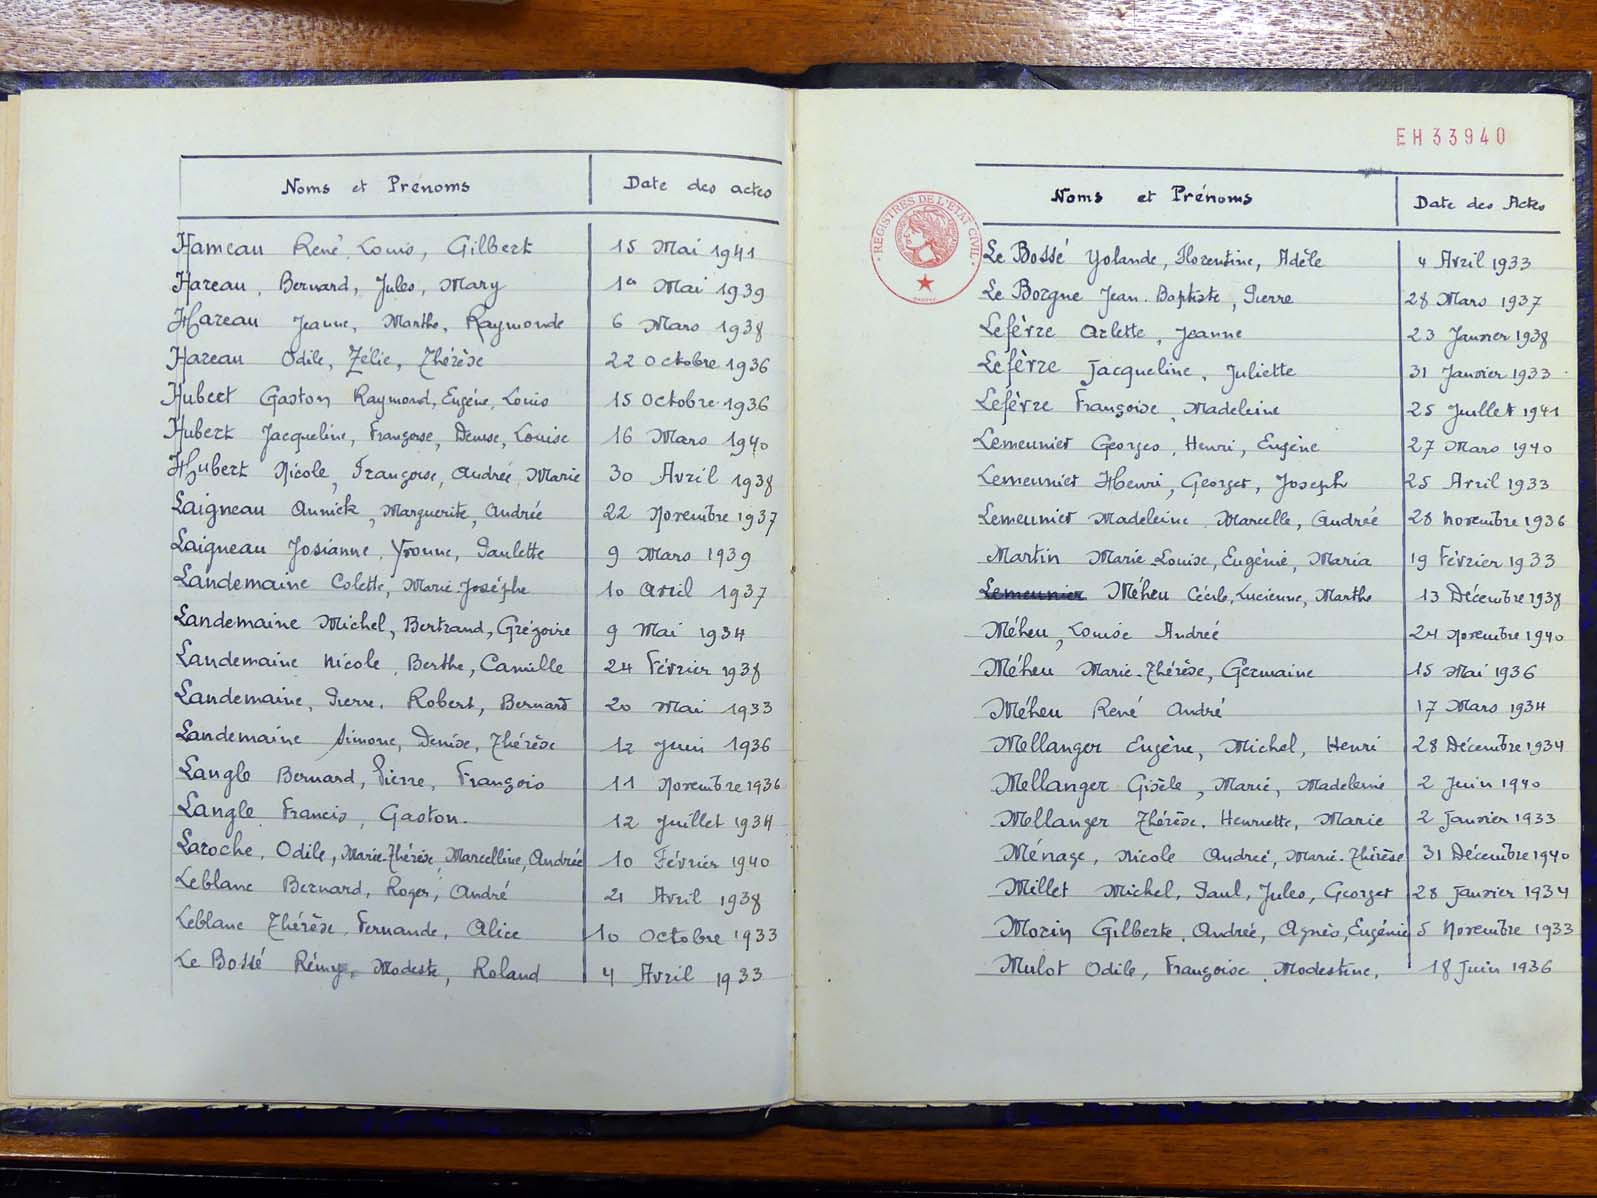 Noms et Prénoms Date des actes
Hameau René, Louis, Gilbert 15 Mai 1941
Hareau, Bernard, Jules, Mary 1er Mai 1939
Hareau Jeanne, Marthe, Raymonde 6 Mars 1938
Hareau Odile, Zélie, Thérèse 22 Octobre 1936
Hubert Gaston Raymond, Eugène, Louis 15 Octobre 1936
Hubert Jacqueline, Françoise, Denise, Louise 16 Mars 1940
Hubert Nicole, Françoise, Andrée, Marie 30 Avril 1938
Laigneau Annick, Marguerite, Andrée 22 Novembre 1937
Laigneau Josianne, Yvonne, Paulette 9 Mars 1939
Landemaine Colette, Marie-Josèphe 10 Avril 1937
Landemaine Michel, Bertrand, Grégoire 9 Mai 1934
Landemaine Nicole, Berthe, Camille 24 Février 1938
Landemaine, Pierre, Robert, Bernard 20 Mai 1933
Landemaine Simone, Denise, Thérèse 12 Juin 1936
Langle Bernard, Pierre, François 11 Novembre 1936
Langle Francis, Gaston. 12 Juillet 1934
Laroche, Odile, Marie-Thérèse Marcelline, Andrée 10 Février 1940
Leblanc Bernard, Roger, André 21 Avril 1938
Leblanc Thérèse, Fernande, Alice 10 Octobre 1933
Le Bossé Rémy, Modeste, Roland 4 Avril 1933
EH33940
REGISTRES DE L'ETAT CIVIL
Noms et Prénoms Date des Actes
Le Bossé Yolande, Florentine, Adèle 4 Avril 1933
Le Borgne Jean-Baptiste, Pierre 28 Mars 1937
Lefèvre Arlette, Jeanne 23 Janvier 1938
Lefèvre Jacqueline, Juliette 31 Janvier 1933
Lefèvre Françoise, Madeleine 25 Juillet 1941
Lemeunier Georges, Henri, Eugène 27 Mars 1940
Lemeunier Henri, Georges, Joseph 25 Avril 1933
Lemeunier Madeleine, Marcelle, Andrée 28 Novembre 1936
Martin Marie-Louise, Eugénie, Maria 19 Février 1933
Lemeunier Méheu Cécile, Lucienne, Marthe 13 Décembre 1938
Méheu, Louise Andrée 24 Novembre 1940
Méheu Marie-Thérèse, Germaine 15 Mai 1936
Méheu René André 17 Mars 1934
Mellanger Eugène, Michel, Henri 28 Décembre 1934
Mellanger Gisèle, Marie, Madeleine 2 Juin 1940
Mellanger Thérèse, Henriette, Marie 2 Janvier 1933
Ménage, Nicole Andrée, Marie-Thérèse 31 Décembre 1940
Millet Michel, Paul, Jules, Georges 28 Janvier 1934
Morin Gilberte, Andrée, Agnès, Eugénie 5 Novembre 1933
Mulot Odile, Françoise, Modestine, 18 Juin 1936